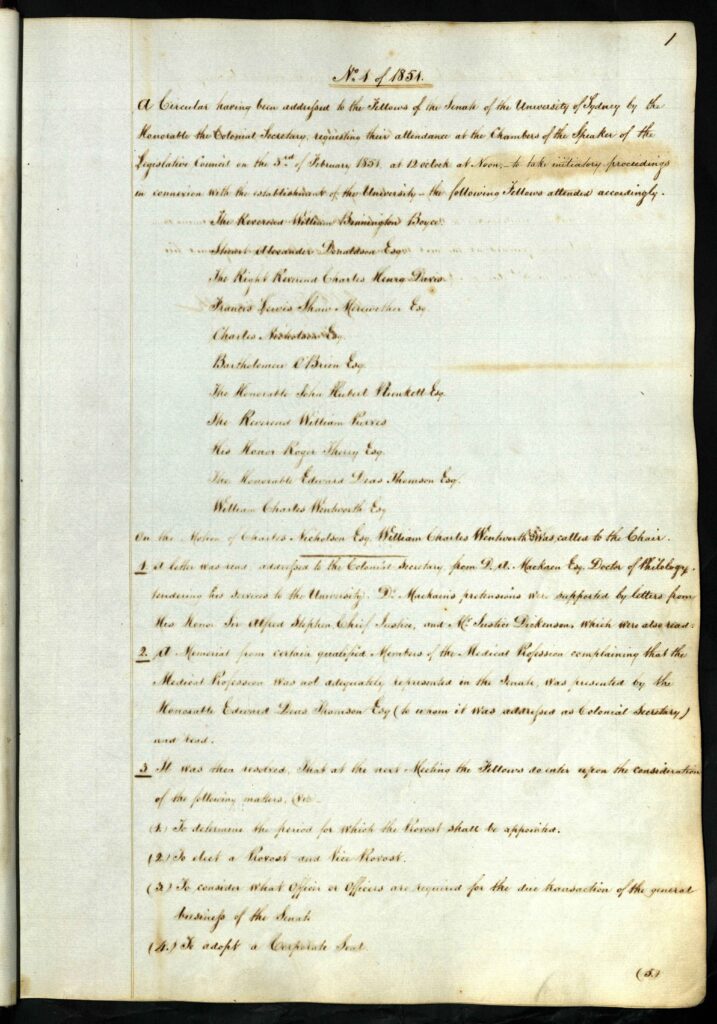 1
No. 1 of 1851.
A Circular having been addressed to the Fellows of the Senate of the University of Sydney by the
Honorable the Colonial Secretary, requesting their attendance at the Chambers of the Speaker of the
Legislative Council on the 3rd of February 1851, at 12 oclock at Noon, – to take initiatory proceedings
in connexion with the establishment of the University – the following Fellows attended accordingly.
The Reverend William Binnington Boyce
Stuart Alexander Donaldson Esq.
The Right Reverend Charles Henry Davis
Francis Lewis Shaw Merewether Esq.
Charles Nicholson Esq.
Bartholomew O'Brien Esq
The Honorable John Hubert Plunkett Esq.
The Reverend William Purves
His Honor Roger Therry Esq.
The Honorable Edward Deas Thomson Esq.
William Charles Wentworth Esq
On the Motion of Charles Nicholson Esq. William Charles Wentworth Esq was called to the Chair.
1 A letter was read, addressed to the Colonial Secretary from D. A. Esq. Doctor of Philology,
tendering his services to the University. Dr. pretensions were supported by letters from
His Honor Sir Alfred Stephen Chief Justice, and Mr. Justice Dickenson, which were also read.
2. A Memorial from certain qualified Members of the Medical Profession complaining that the
Medical Profession was not adequately represented in the Senate, was presented by the
Honorable Edward Deas Thomson Esq (to whom it was addressed as Colonial Secretary)
and read.
3 It was then resolved, That at the next Meeting the Fellows do enter upon the consideration
of the following matters, viz –
(1.) To determine the period for which the Provost shall be appointed.
(2.) To elect a Provost and Vice Provost.
(3.) To consider what Officer or Officers are required for the due transaction of the general
business of the Senate
(4.) To adopt a Corporate Seal.
(5.)